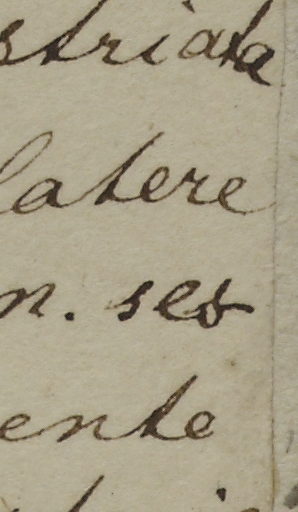 striata
latere
n. ses
ente